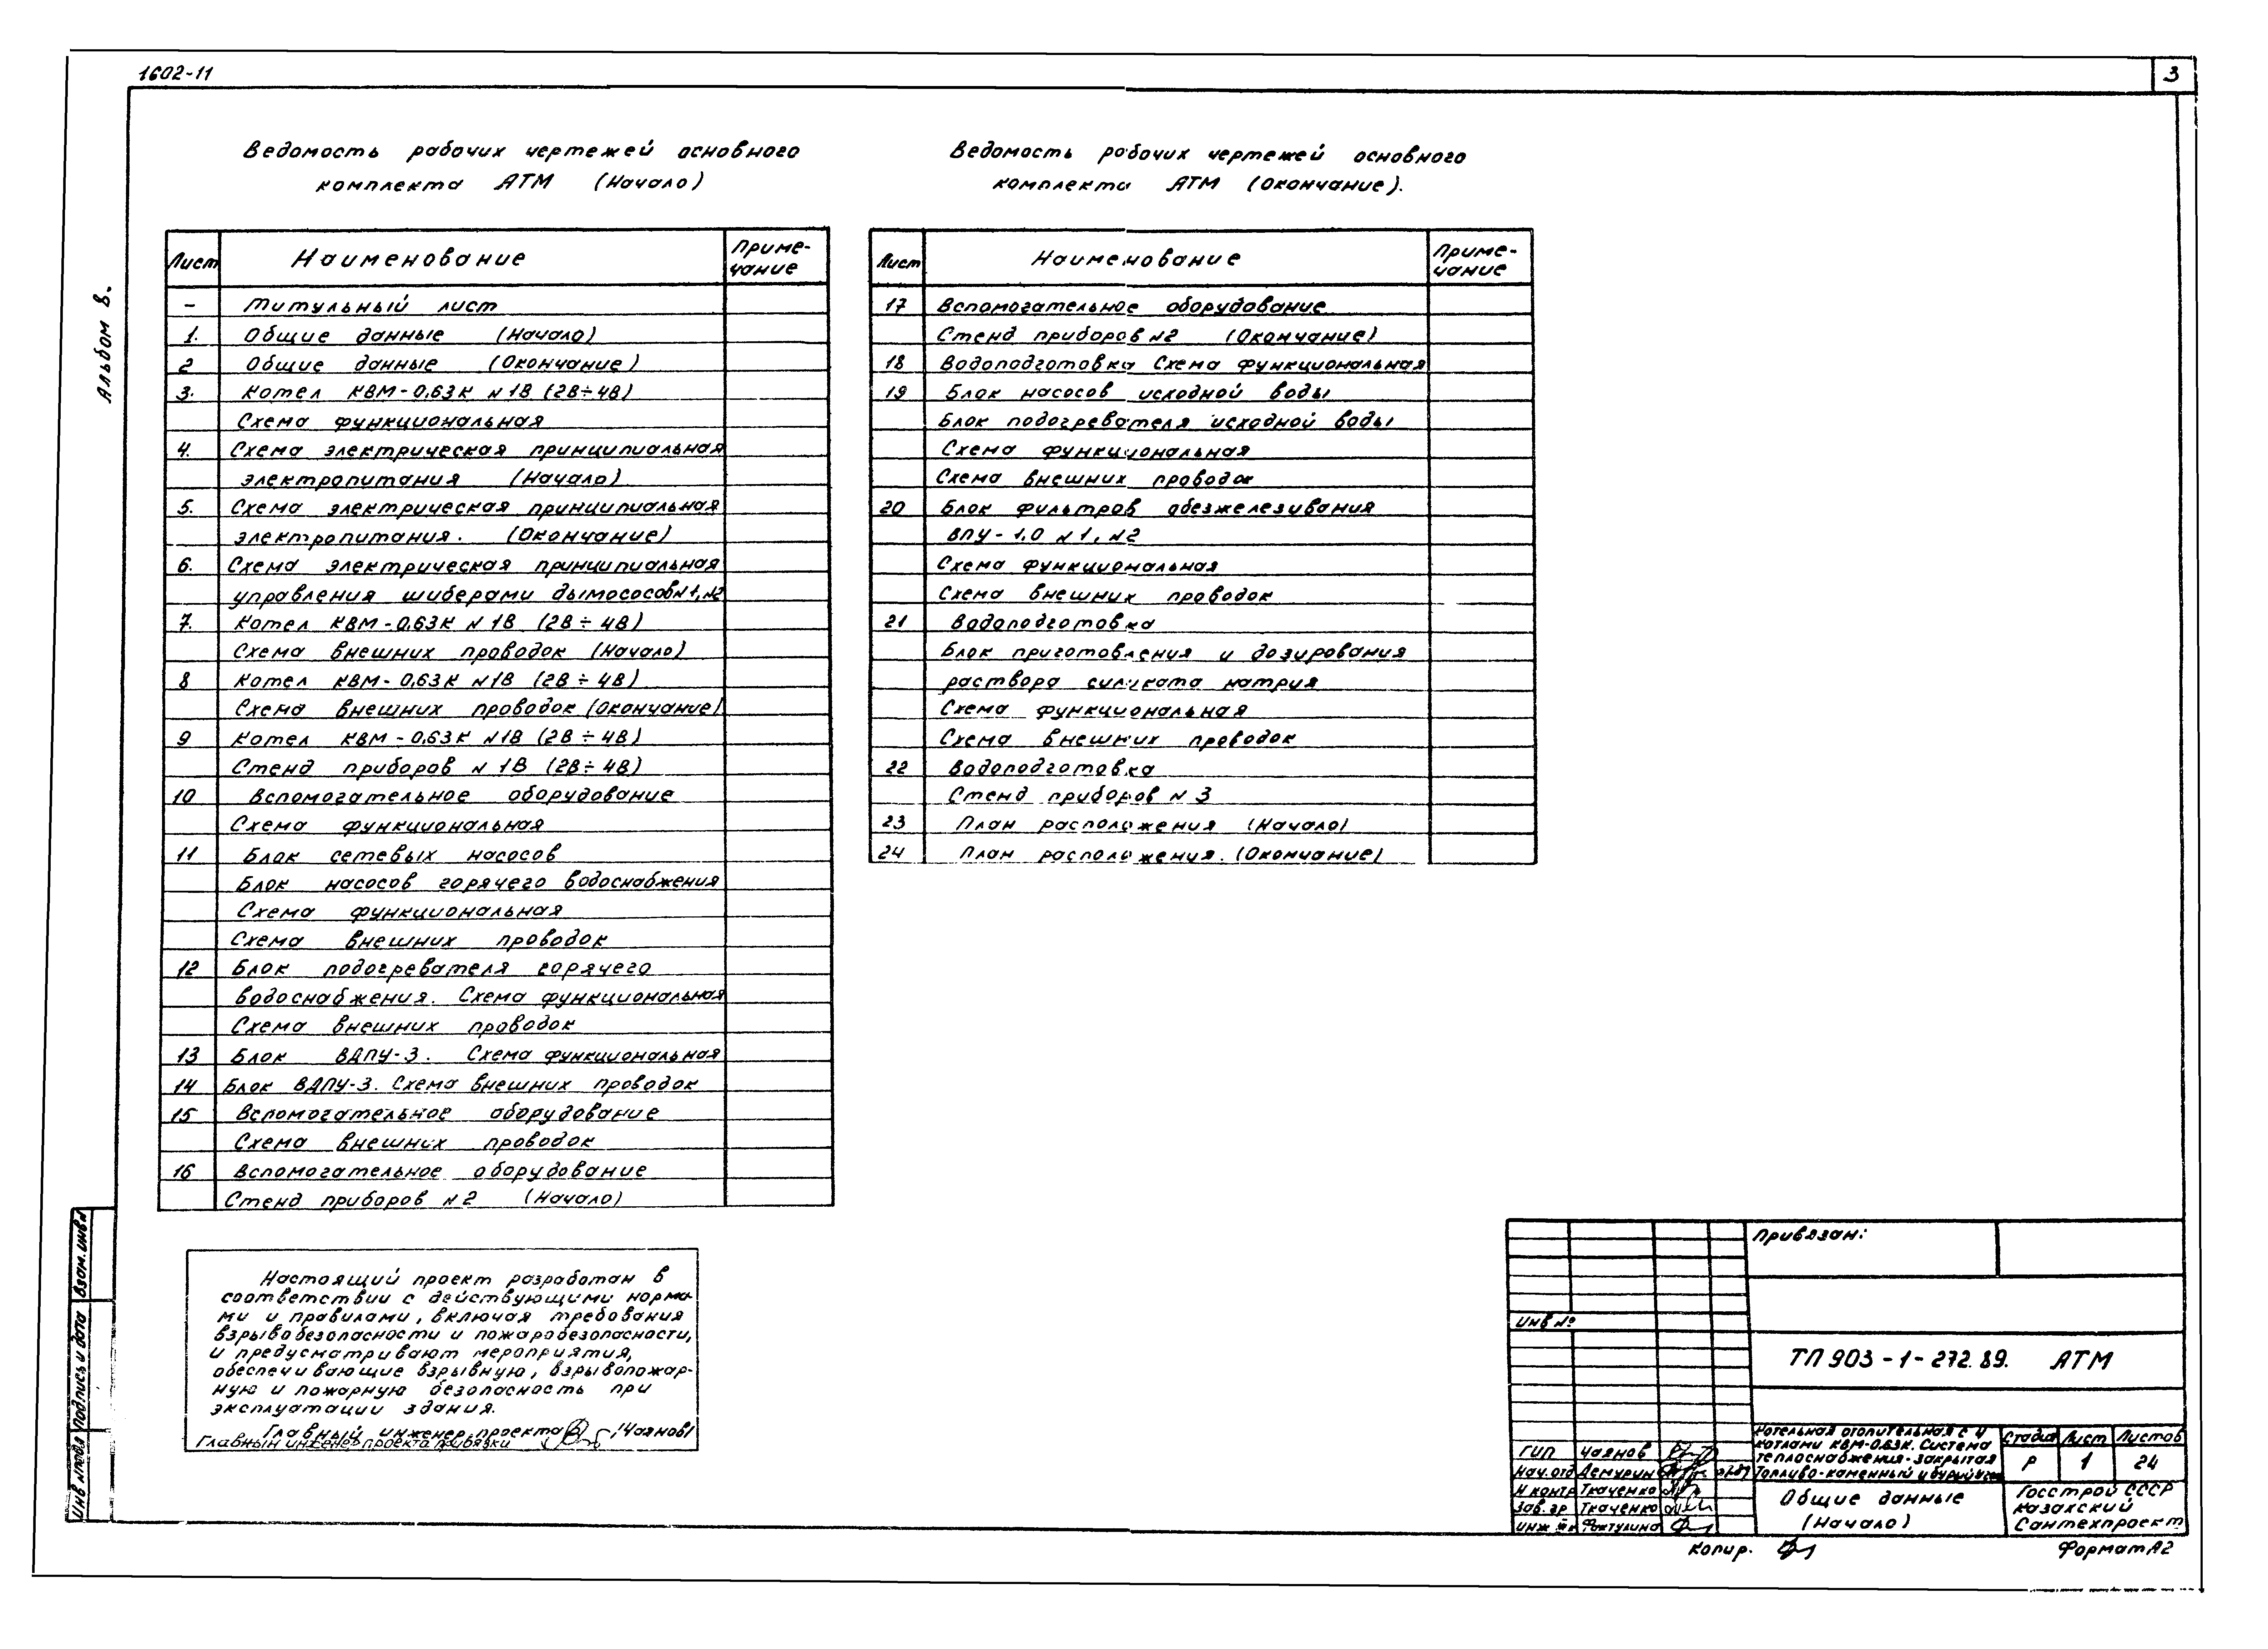 1602-11
3
Альбом 8.
Ведомость рабочих чертежей основного
комплекта АТМ (Начало)
Лист Наименование Приме-
чание
– Титульный лист
1. Общие данные (Начало)
2 Общие данные (Окончание)
3. Котел КВМ-0,63К N1В (2В÷4В)
Схема функциональная
4. Схема электрическая принципиальная
электропитания (Начало)
5. Схема электрическая принципиальная
электропитания. (Окончание)
6. Схема электрическая принципиальная
управления шиберами дымососов N1, N2
7. Котел КВМ-0,63К N1В (2В÷4В)
Схема внешних проводок (Начало)
8 Котел КВМ-0,63К N1В (2В÷4В)
Схема внешних проводок (Окончание)
9 Котел КВМ-0,63К N1В (2В÷4В)
Стенд приборов N1В (2В÷4В)
10 Вспомогательное оборудование
Схема функциональная
11 Блок сетевых насосов
Блок насосов горячего водоснабжения
Схема функциональная
Схема внешних проводок
12 Блок подогревателя горячего
водоснабжения. Схема функциональная
Схема внешних проводок
13 Блок ВДПУ-3. Схема функциональная
14 Блок ВДПУ-3. Схема внешних проводок
15 Вспомогательное оборудование
Схема внешних проводок
16 Вспомогательное оборудование
Стенд приборов N2 (Начало)
Ведомость рабочих чертежей основного
комплекта АТМ (Окончание).
Лист Наименование Приме-
чание
17 Вспомогательное оборудование
Стенд приборов N2 (Окончание)
18 Водоподготовка Схема функциональная
19 Блок насосов исходной воды
Блок подогревателя исходной воды
Схема функциональная
Схема внешних проводок
20 Блок фильтров обезжелезивания
ВПУ-1,0 N1, N2
Схема функциональная
Схема внешних проводок
21 Водоподготовка
Блок приготовления и дозирования
раствора силиката натрия
Схема функциональная
Схема внешних проводок
22 Водоподготовка
Стенд приборов N3
23 План расположения (Начало)
24 План расположения. (Окончание)
Настоящий проект разработан в
соответствии с действующими норма-
ми и правилами, включая требования
взрывобезопасности и пожаробезопасности,
и предусматривают мероприятия,
обеспечивающие взрывную, взрывопожар-
ную и пожарную безопасность при
эксплуатации здания.
Главный инженер проекта /Чаянов/
Главный инженер проекта привязки
Взам. инв N
Подпись и дата
Инв N подл
Привязан:
Инв №
ТП 903-1-272.89. АТМ
Котельная отопительная с 4
котлами КВМ-0.63К. Система
теплоснабжения-закрытая
Топливо-каменный и бурый уголь
Стадия Лист Листов
Р 1 24
ГИП Чаянов
Нач.отд Демурин
Н контр Ткаченко
Зав.гр Ткаченко
Общие данные
(Начало)
Госстрой СССР
Казахский
Сантехпроект
Копир.
Формат А2